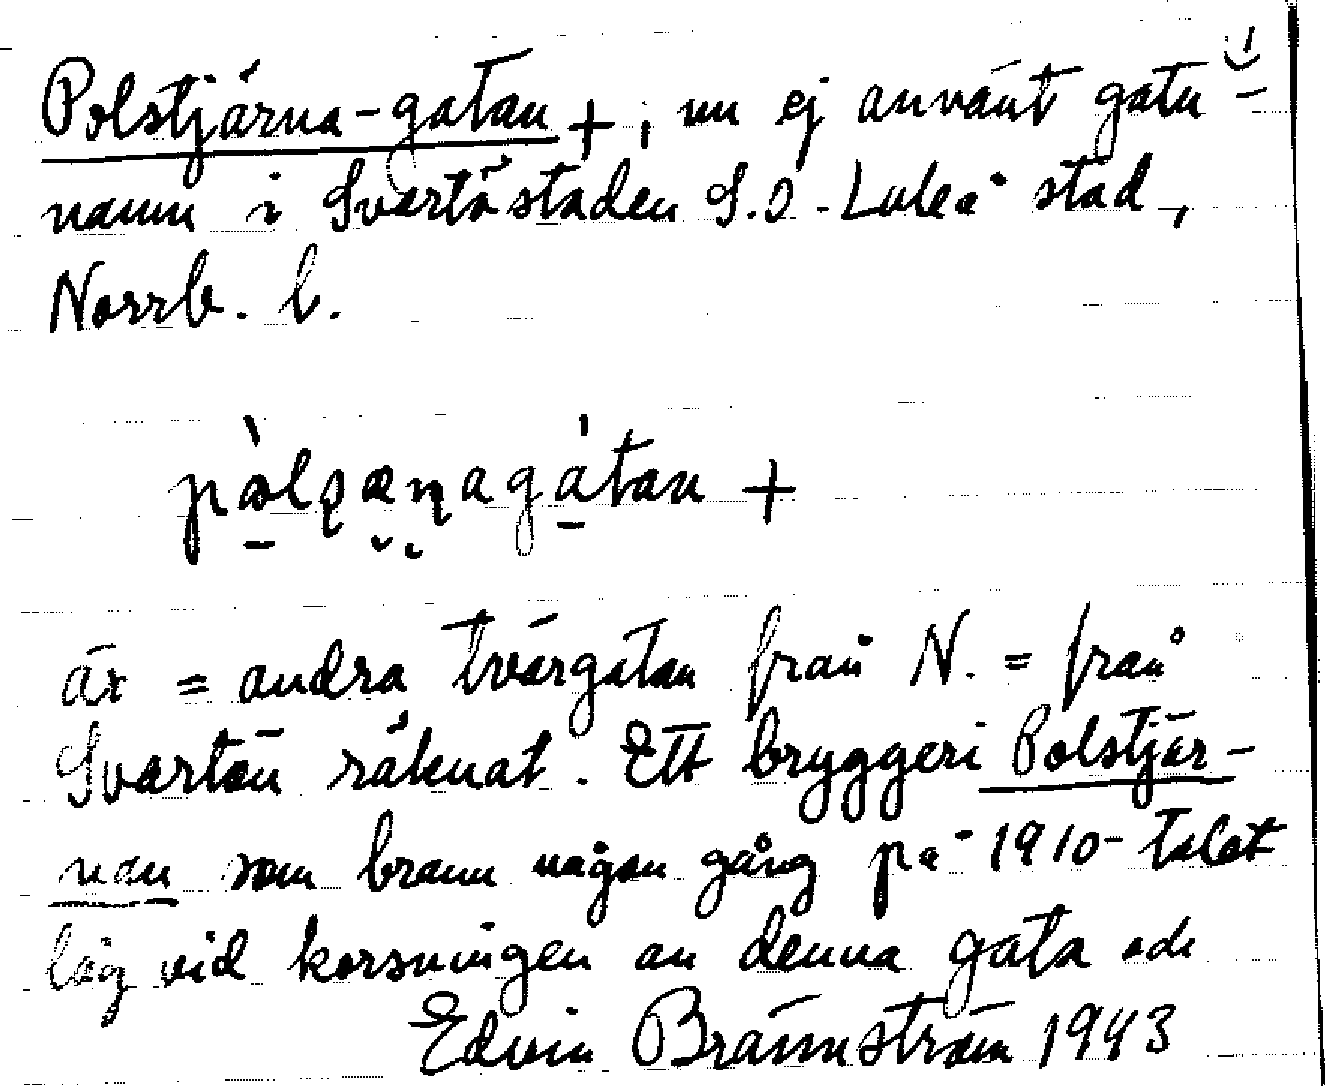 1)
Polstjärna-gatan +, nu ej använt gatu-
namn i Svartöstaden S.O. Luleå stad,
Norrb. l.
+
är = andra tvärgatan från N. = från
Svartön räknat. Ett bryggeri Polstjär-
nan som brann någon gång på 1910-talet
låg vid korsningen av denna gata och
Edvin Brännström 1943